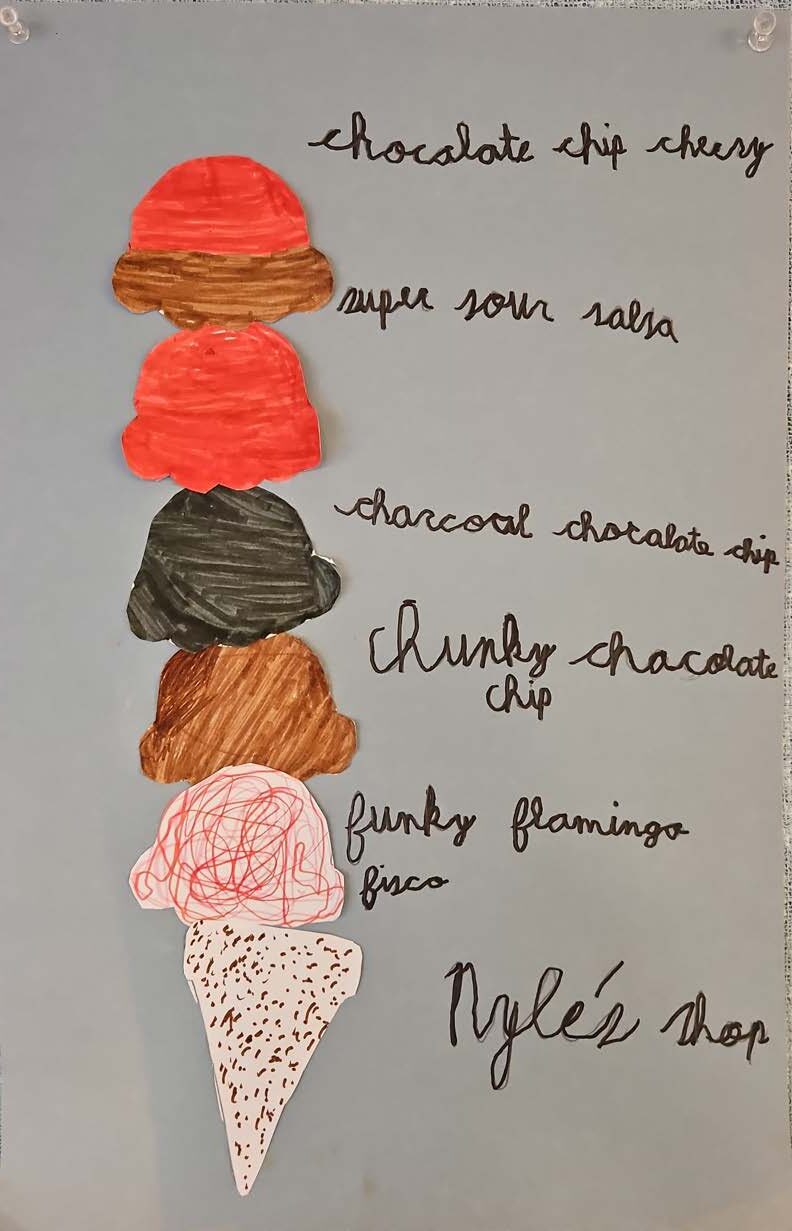 chocolate chip cheesy
super sour salsa
charcoal chocalate chip
Chunky chacolate
chip
funky flamingo
fisco
Nyle's shop